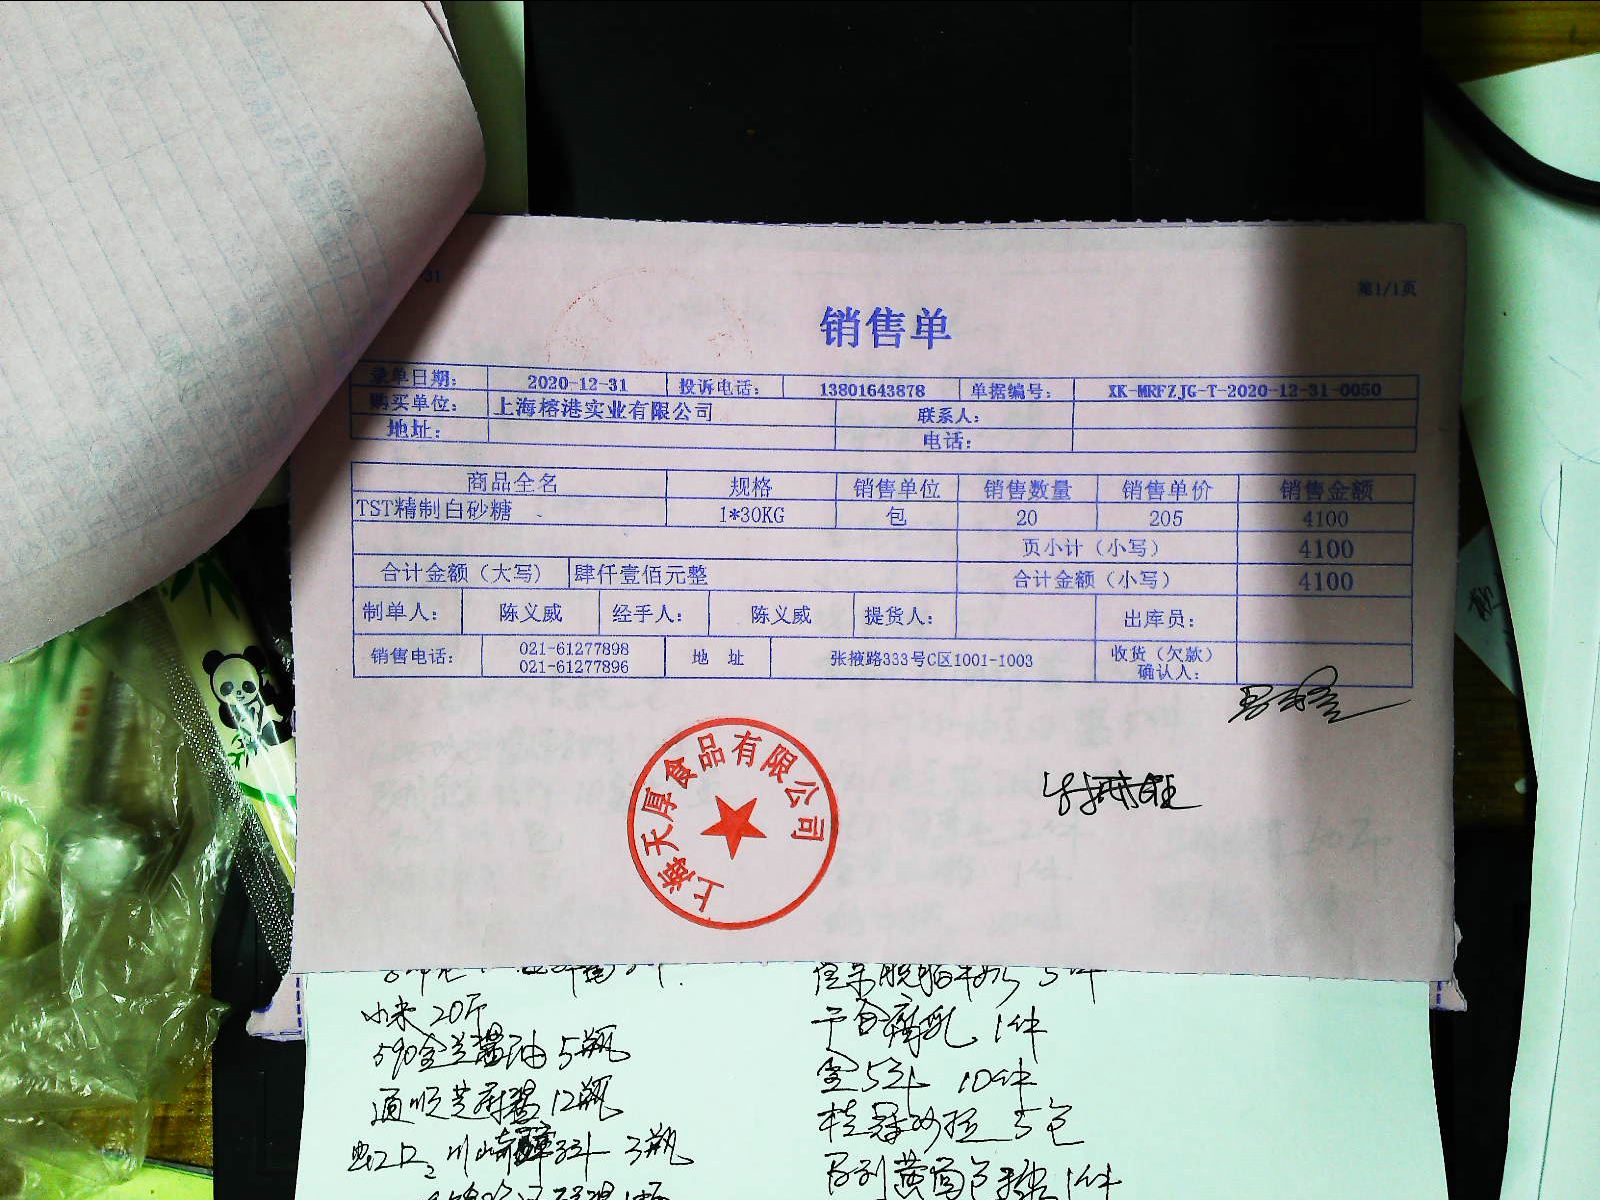 31
第1/1页
销售单
录单日期： 2020-12-31 投诉电话： 13801643878 单据编号： XK-MRFZJG-T-2020-12-31-0050
购买单位： 上海榕港实业有限公司 联系人：
地址： 电话：
商品全名 规格 销售单位 销售数量 销售单价 销售金额
TST精制白砂糖 1*30KG 包 20 205 4100
页小计（小写） 4100
合计金额（大写） 肆仟壹佰元整 合计金额（小写） 4100
制单人： 陈义威 经手人： 陈义威 提货人： 出库员：
销售电话： 021-61277898 021-61277896 地 址 张掖路333号C区1001-1003 收货（欠款）确认人：
上海天厚食品有限公司
小米 20斤
590金兰酱油 5瓶 腐乳 1件
12瓶 10件
3瓶 5包
1件